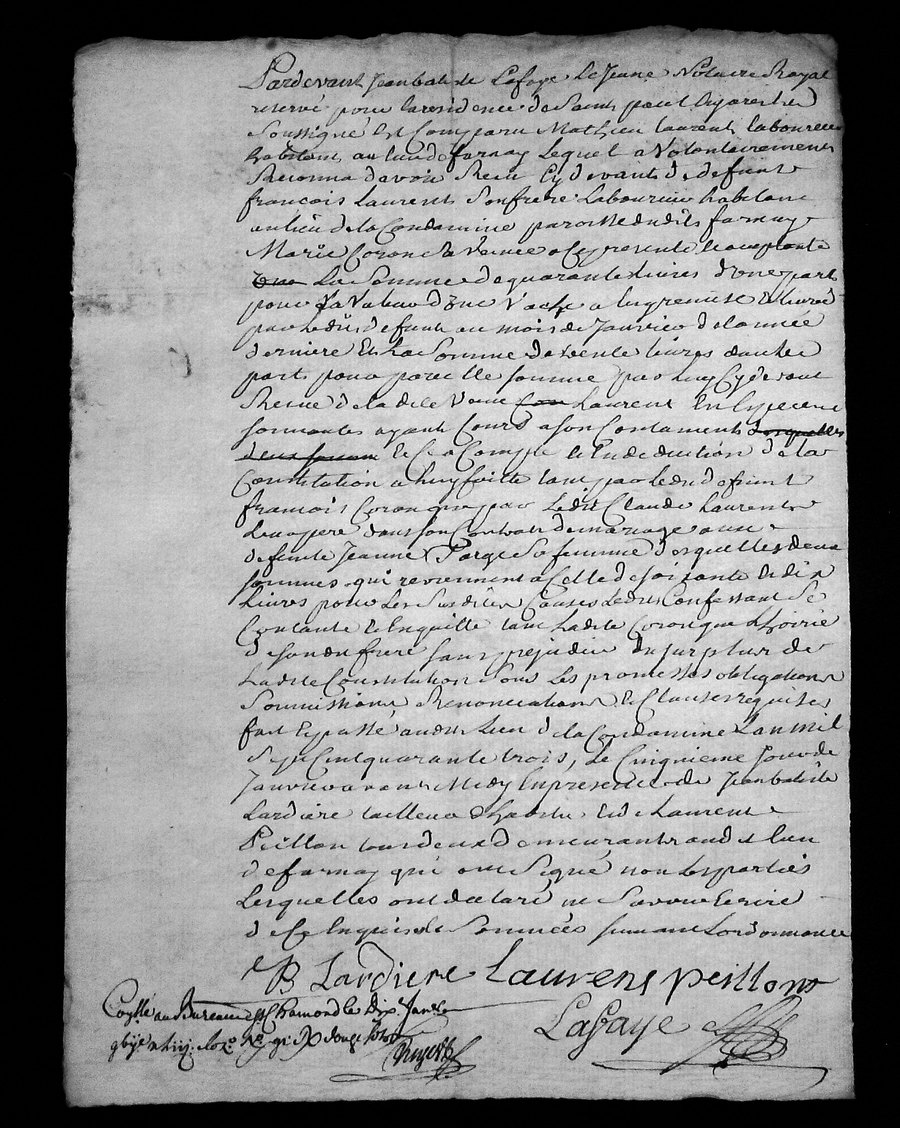 Pardevant Jean batiste Lafaye Le Jeune Notaire Royal
reservé pour la residence de Saint paul En jarest
Soussigné Est Comparu Mathieu laurent laboureur
habitant au lieu de farnay Lequel a Volontairement
Reconnu d'avoir Receu Cy devant de defunt
françois Laurent Son frere Laboureur habitant
au lieu de la Condamine paroisse dudit farnay
Marie Coron Sa Veuve a Ce presente Et acceptante
La Somme de quarante Livres d'une part
pour La Valeur d'une Vache a luy remise Et livrée
par Ledit defunt au mois de Janvier de l'année
derniere Et La Somme de trente livres d'autre
part pour pareille somme par luy Cy devant
Receue de la dite Veuve Laurent En Especes
sonnantes ayant Cours a son Contentement
Et Ce a Compte Et En deduction de la
Constitution a luy faitte tant par Ledit defunt
françois Coron que par Ledit Claude Laurent
Leur pere dans son Contrat de mariage avec
defunte Jeanne Sa femme desquelles deux
sommes qui reviennent a Celle de soixante Et dix
Livres pour Les Susdites Causes Ledit Confessant Se
Contante Et En quitte tant Ladite Coron que L'hoirie
de son dit frere sans prejudice du surplus de
Ladite Constitution Sous Les promesses obligations
Soumissions Renonciations Et Clauses requises
fait Et passé audit Lieu de la Condamine L'an mil
Sept Cent quarante trois, Le Cinquieme Jour de
Janvier avant Midy En presence de Jean batiste
Lardiere tailleur d'habits Et de Laurent
Peillon tous deux demeurants audit lieu
de farnay qui ont Signé non Les parties
Lesquelles ont declaré ne Savoir Ecrire
de Ce Enquis Et Sommées suivant L'ordonnance
JB Lardiere Laurens peillon
Coñllé au Bureau de St Chamond le Dix Janer
Lafaye
Reçu douze sols